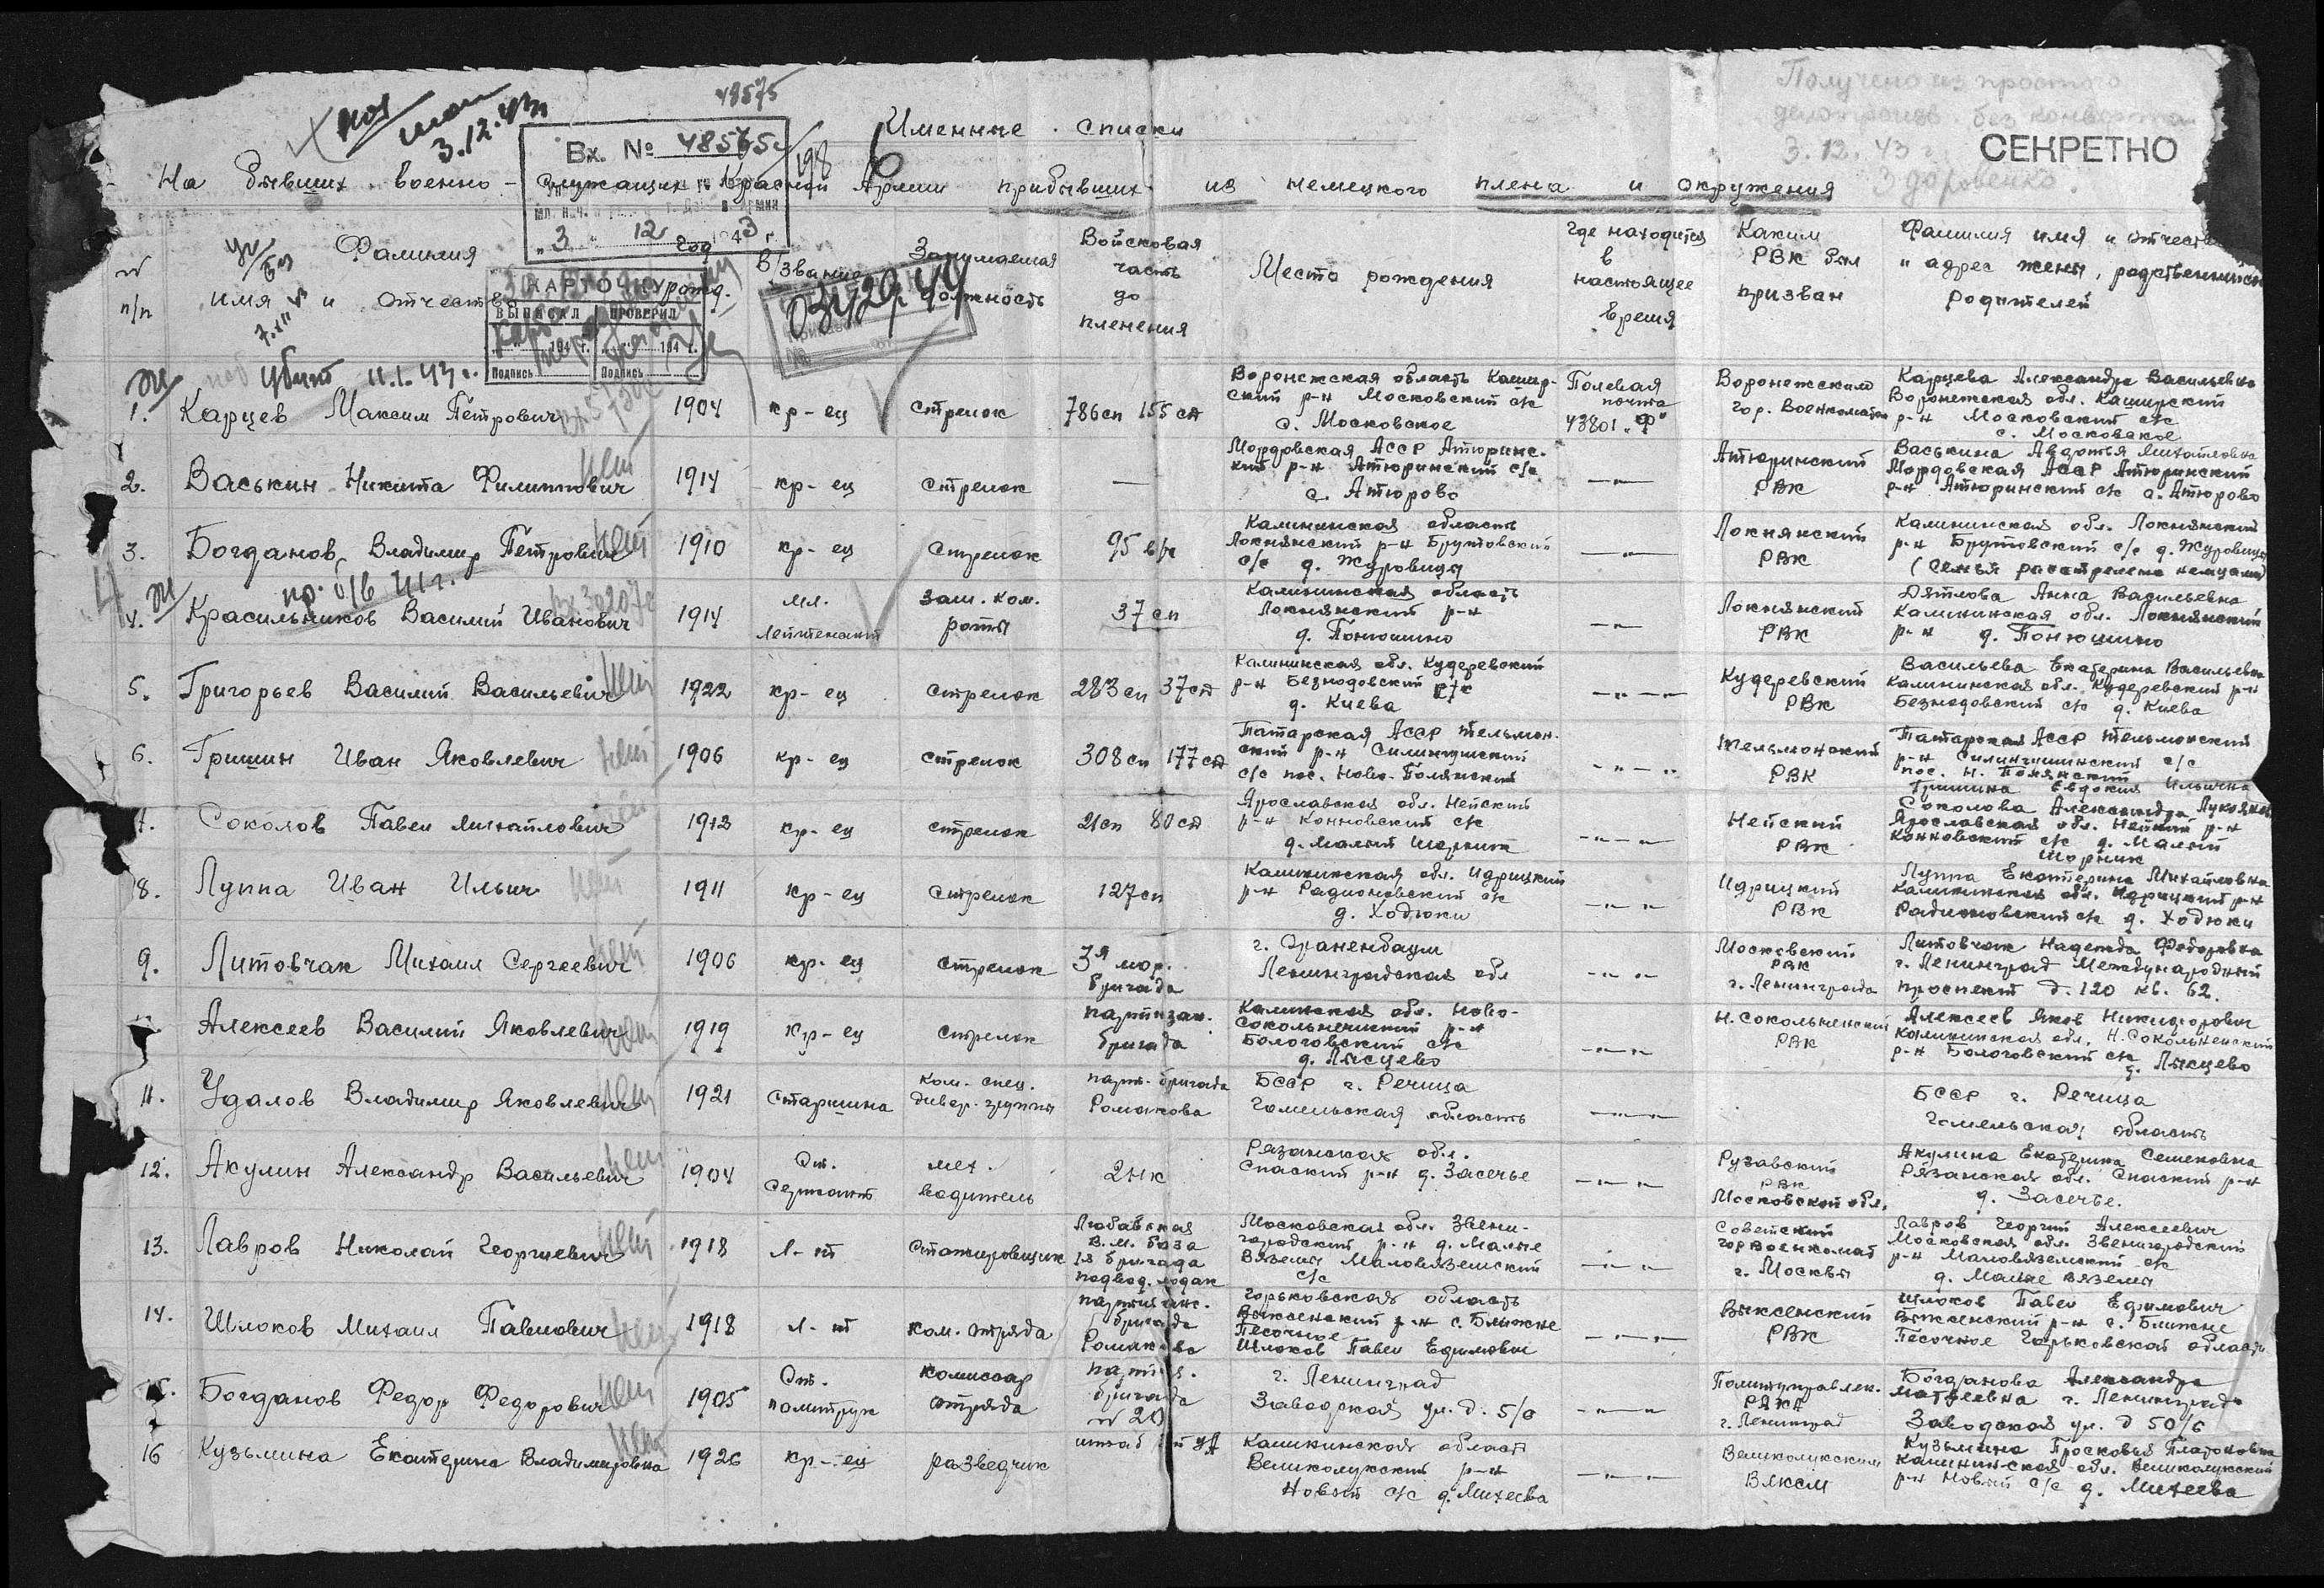 48575
Получено из простого
делопроизв. без конверта
3.12.43 г.
Здоровенко.
СЕКРЕТНО
3.12.43
Вх. № 48575с
Именные списки
На бывших военно-служащих Красной Армии прибывших из немецкого плена и окружения
"3" 12 1943 г.
№ п/п
Фамилия имя и отчество
Год рожд.
В/звание
Занимаемая должность
Войсковая часть до пленения
Место рождения
Где находится в настоящее время
Каким РВК был призван
Фамилия имя и отчество
и адрес жены, родственников
родителей
КАРТОЧКУ
ВЫПИСАЛ ПРОВЕРИЛ
194 г. 194 г.
Подпись Подпись
7.XII
убит 11.1.43 г.
1. Карцев Максим Петрович 1904 кр-ец стрелок 786сп 155сд
Воронежская область Кашир-
ский р-н Московский с/с
с. Московское
Полевая
почта
43801 "Ф"
Воронежским
гор. Военкоматом
Карцева Александра Васильевна
Воронежская обл. Каширский
р-н Московский с/с
с. Московское
2. Васькин Никита Филиппович нет 1914 кр-ец стрелок —
Мордовская АССР Атюринс-
кий р-н Атюринский с/с
с. Атюрово
—"—
Атюринский
РВК
Васькина Авдотья Михайловна
Мордовская АССР Атюринский
р-н Атюринский с/с с. Атюрово
3. Богданов Владимир Петрович нет 1910 кр-ец стрелок 95 в/ч
Калининская область
Локнянский р-н Брутовский
с/с д. Журовица
—"—
Локнянский
РВК
Калининская обл. Локнянский
р-н Брутовский с/с д. Журовица
(семья расстреляна немцами)
пр. б/в 41 г.
4. Красильников Василий Иванович 1914 мл. лейтенант зам. ком. роты 37 сп
Калининская область
Локнянский р-н
д. Понюшино
—"—
Локнянский
РВК
Дятлова Анна Васильевна
Калининская обл. Локнянский
р-н д. Понюшино
5. Григорьев Василий Васильевич нет 1922 кр-ец стрелок 283сп 37сд
Калининская обл. Кудеревский
р-н Безнодовский с/с
д. Киева
—"—
Кудеревский
РВК
Васильева Екатерина Васильевна
Калининская обл. Кудеревский р-н
Безнодовский с/с д. Киева
6. Гришин Иван Яковлевич нет 1906 кр-ец стрелок 308сп 177сд
Татарская АССР Тельман-
ский р-н
с/с пос. Ново-Полянский
—"—
Тельмонский
РВК
Татарская АССР Тельмонский
р-н с/с
пос. Н. Полянский
Гришина Евдокия Ильинна
7. Соколов Павел Михайлович 1913 кр-ец стрелок 21сп 80сд
Ярославская обл. Нейский
р-н Конновский с/с
д. Малый Шорник
—"—
Нейский
РВК
Соколова Александра
Ярославская обл. Нейский р-н
Конновский с/с д. Малый
Шорник
8. Луппа Иван Ильич нет 1911 кр-ец стрелок 127сп
Калининская обл. Идрицкий
р-н Радионовский с/с
д. Ходюки
—"—
Идрицкий
РВК
Луппа Екатерина Михайловна
Калининская обл. Идрицкий р-н
Радионовский с/с д. Ходюки
9. Литовчак Михаил Сергеевич нет 1906 кр-ец стрелок 3я мор. бригада
г. Ораненбаум
Ленинградская обл
—"—
Московский
РВК
г. Ленинграда
Литовчак Надежда Федоровна
г. Ленинград Международный
проспект д. 120 кв. 62.
Алексеев Василий Яковлевич нет 1919 кр-ец стрелок партизан. бригада
Калинская обл. Ново-
сокольнический р-н
Бологовский с/с
д. Лысцево
—"—
Н. Сокольненский
РВК
Алексеев Яков Никифорович
Калининская обл. Н. Сокольненский
р-н Бологовский с/с
д. Лысцево
11. Удалов Владимир Яковлевич нет 1921 старшина ком. спец. дивер. группы парт. бригада Ромакова
БССР г. Речица
Гомельская область
—"—
БССР г. Речица
Гомельская область
12. Акулин Александр Васильевич нет 1904 Ст. Сержант мех. водитель 2 тк
Рязанская обл.
Спаский р-н д. Засечье
—"—
Рузавский
РВК
Московской обл.
Акулина Екатерина Семеновна
Рязанская обл. Спаский р-н
д. Засечье.
13. Лавров Николай Георгиевич нет 1918 л-нт Стажировщик
Либавская
В. М. база
1я бригада
подвод. лодак
Московская обл. Звени-
городский р-н д. Малые
Вяземы Маловяземский
с/с
—"—
Советский
горвоенкомат
г. Москвы
Лавров Георгий Алексеевич
Московская обл. Звенигородский
р-н Маловяземский с/с
д. Малые Вяземы
14. Шлоков Михаил Павлович нет 1918 л-нт ком. отряда
партизанс.
бригада
Ромакова
Горьковская область
Выксенский р-н с. Ближне
Песочное
Шлоков Павел Ефимович
—"—
Выксенский
РВК
Шлоков Павел Ефимович
Выксенский р-н с. Ближне
Песочное Горьковской области
15. Богданов Федор Федорович нет 1905 Ст. политрук комиссар отряда
партиз.
бригада
№ 20
г. Ленинград
Заводская ул. д. 5/6
—"—
Политуправлен.
РККА
г. Ленинград
Богданова Александра
Матвеевна г. Ленинград
Заводская ул. д 50/6
16 Кузьмина Екатерина Владимировна нет 1926 кр-ец разведчик штаб уд
Калининская област
Великолукский р-н
Новый с/с д. Михеева
—"—
Великолукским
ВЛКСМ
Кузьмина Просковья Платоновна
Калининская обл. Великолукский
р-н Новый с/с д. Михеева